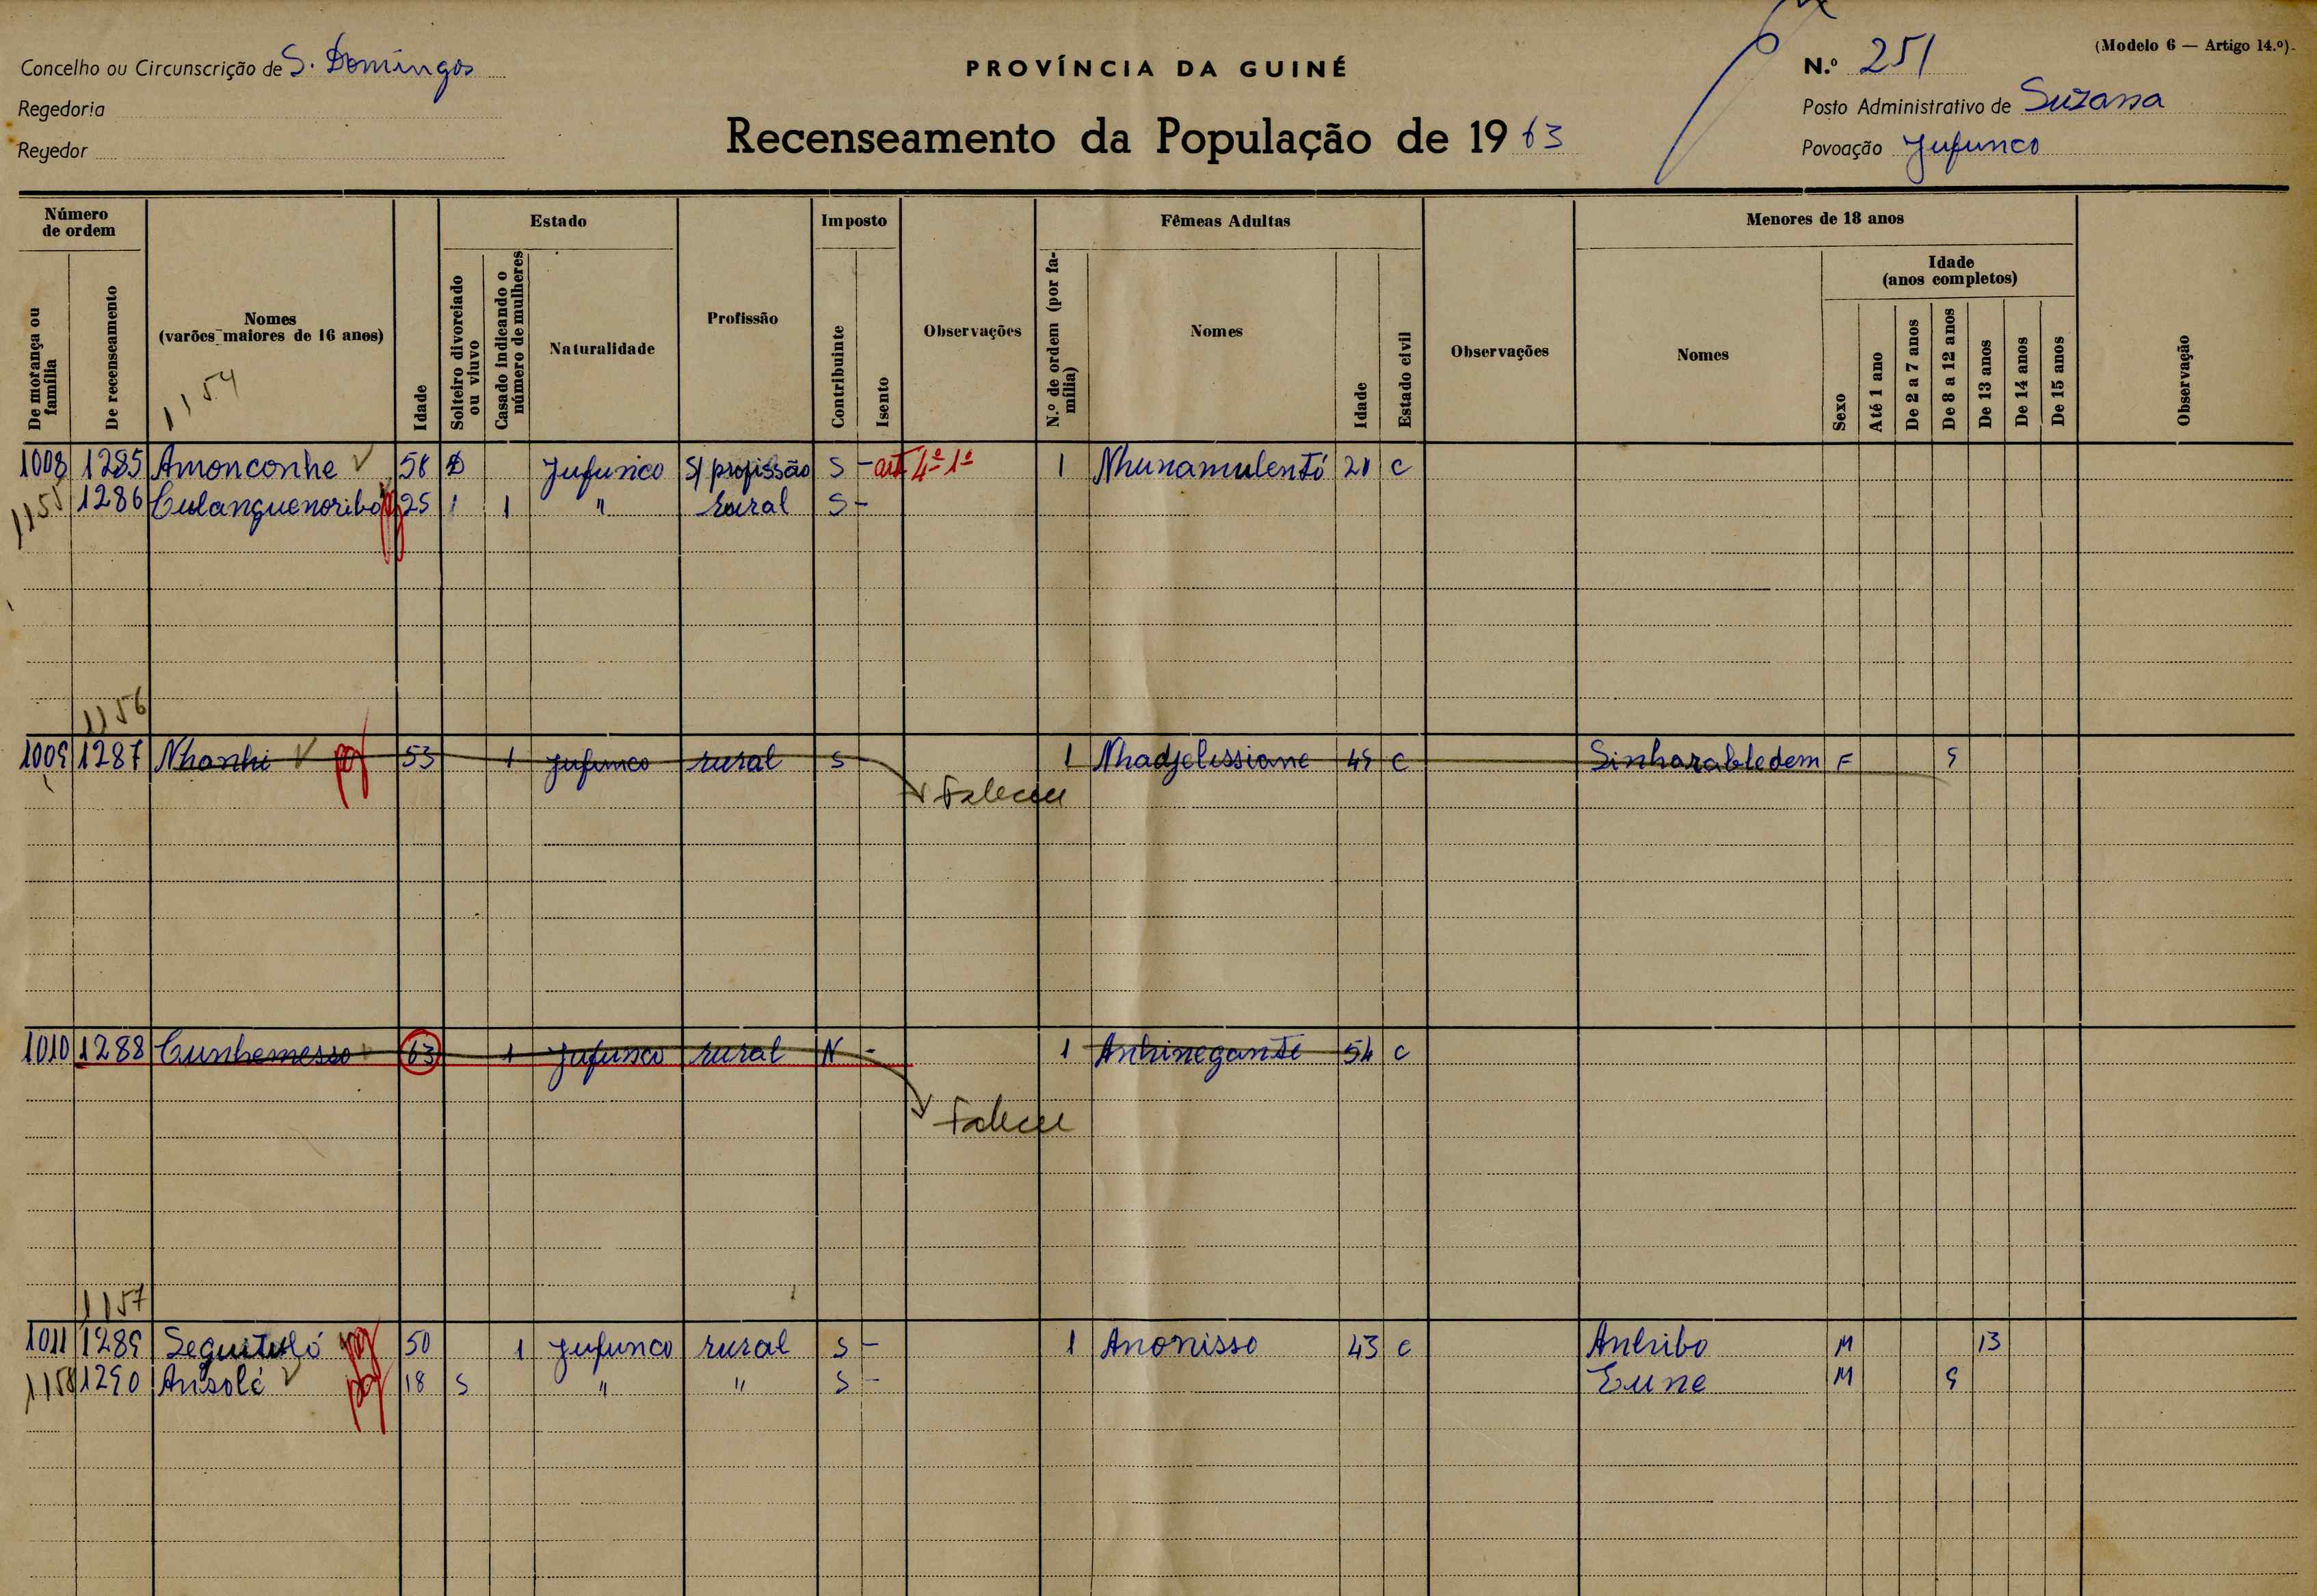 Concelho ou Circunscrição de S. Domingos
Regedoria
Regedor
PROVÍNCIA DA GUINÉ
Recenseamento da População de 1963
(Modelo 6 — Artigo 14.º).
N.º 251
Posto Administrativo de Suzana
Povoação Jufunco
Número de ordem
De morança ou família
De recenseamento
Nomes
(varões maiores de 16 anos)
1154
Idade
Estado
Solteiro divorciado ou viuvo
Casado indicando o número de mulheres
Naturalidade
Profissão
Imposto
Contribuinte
Isento
Observações
Fêmeas Adultas
N.º de ordem (por família)
Nomes
Idade
Estado civil
Observações
Menores de 18 anos
Nomes
Sexo
Idade
(anos completos)
Até 1 ano
De 2 a 7 anos
De 8 a 12 anos
De 13 anos
De 14 anos
De 15 anos
Observação
1008 1285 Amonconhe 58 D Jufunco S/ profissão S - art 4º 1º 1 Nhunamulentó 21 C
1155 1286 Culanguenoribo pg 25 1 1 " rural S -
1156
1009 1287 Nhanhi pg 53 1 Jufunco rural S 1 Nhadjelissiane 49 C Sinharabledem F 9
Faleceu
1010 1288 Cunhemesso 63 1 Jufunco rural N - 1 Anhinegante 54 C
Faleceu
1157
1011 1289 pg 50 1 Jufunco rural S - 1 Anonisso 43 C Anhibo M 13
1158 1290 Ansolé pg 18 S " " S - Eune M 9